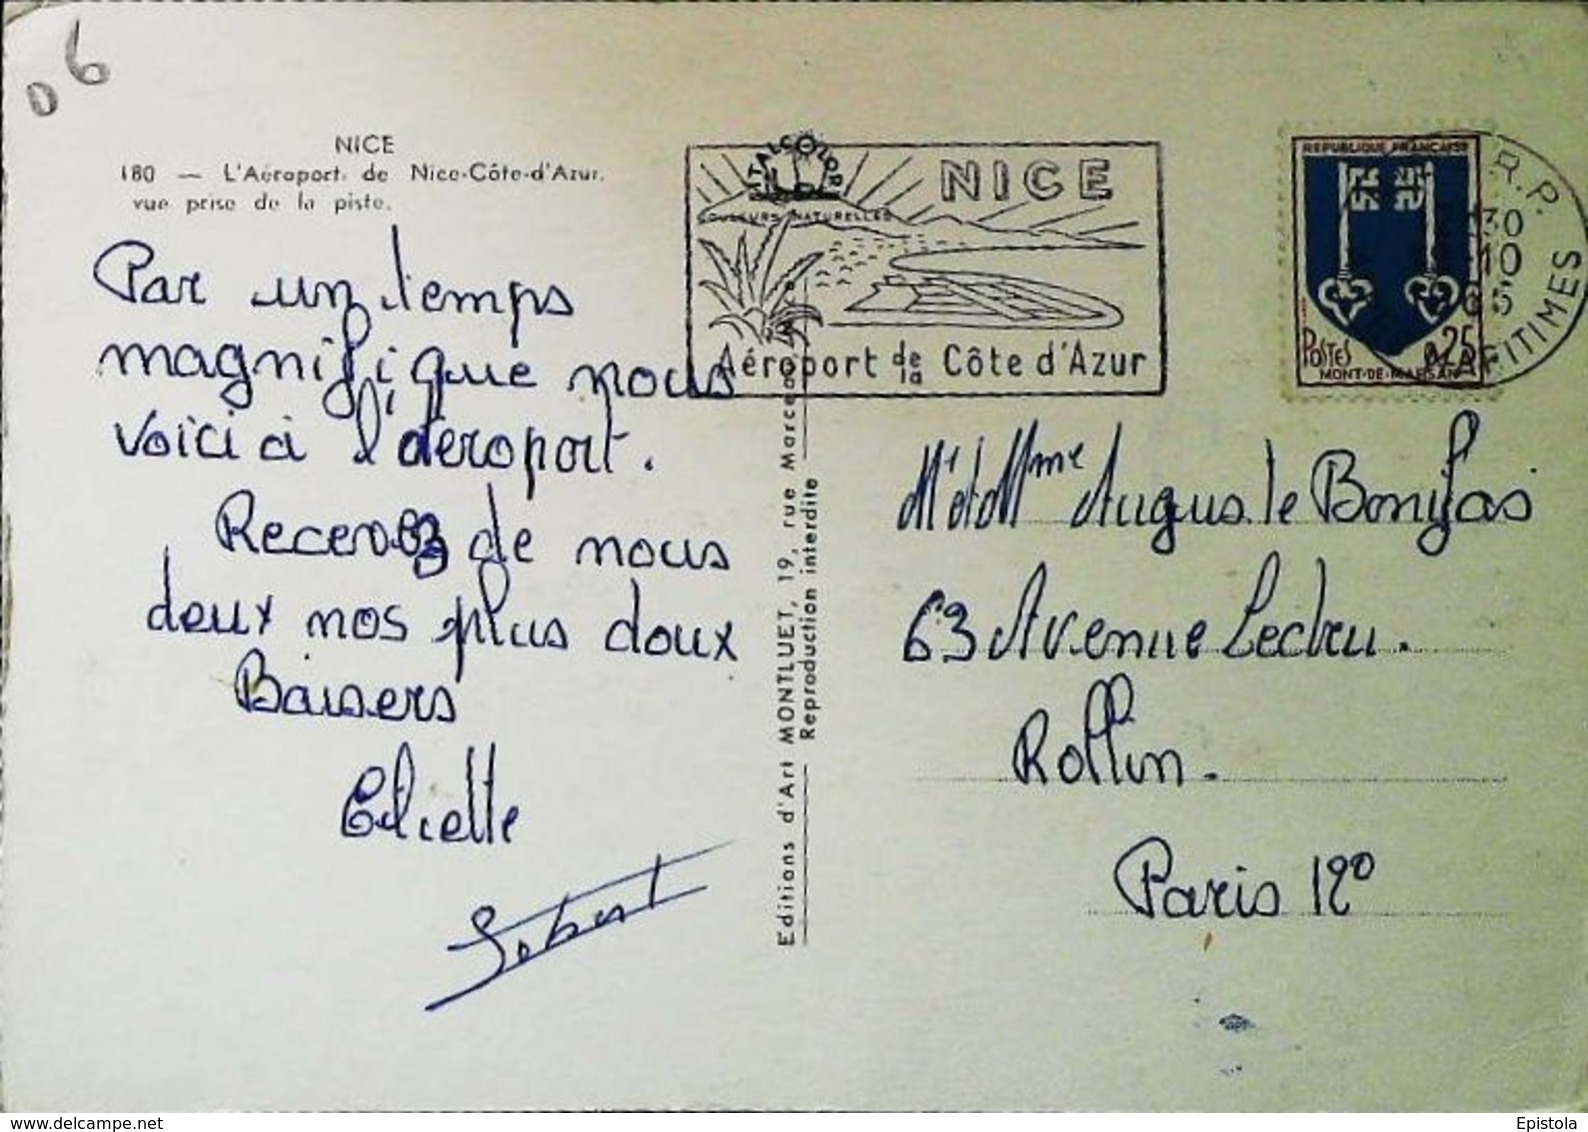 06
NICE
180 — L'Aéroport de Nice-Côte-d'Azur.
vue prise de la piste.
Par un temps
magnifique nous
voici à l'aéroport.
Recevez de nous
deux nos plus doux
Baisers
Eliette
Editions d'Art MONTLUET, 19, rue Marceau
Reproduction interdite
ITALCOLOR
COULEURS NATURELLES
NICE
Aéroport de la Côte d'Azur
REPUBLIQUE FRANÇAISE
POSTES 0,25
MONT-DE-MARSAN
R.P.
30
10
MARITIMES
Mr et Mme Auguste Bonifas
63 Avenue Ledru.
Rollin.
Paris 12°
Epistola